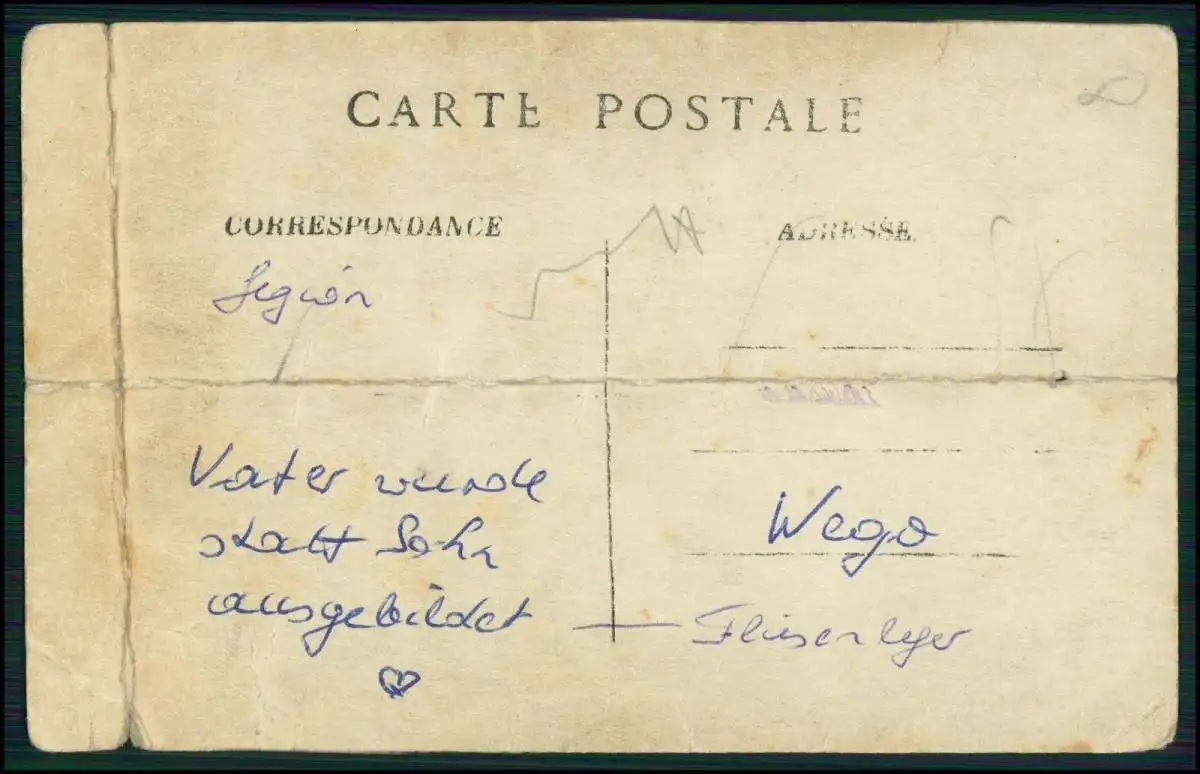 CARTE POSTALE
CORRESPONDANCE
ADRESSE
Legion
Vater wurde
statt Sohn
ausgebildet — Fliesenleger
Wego